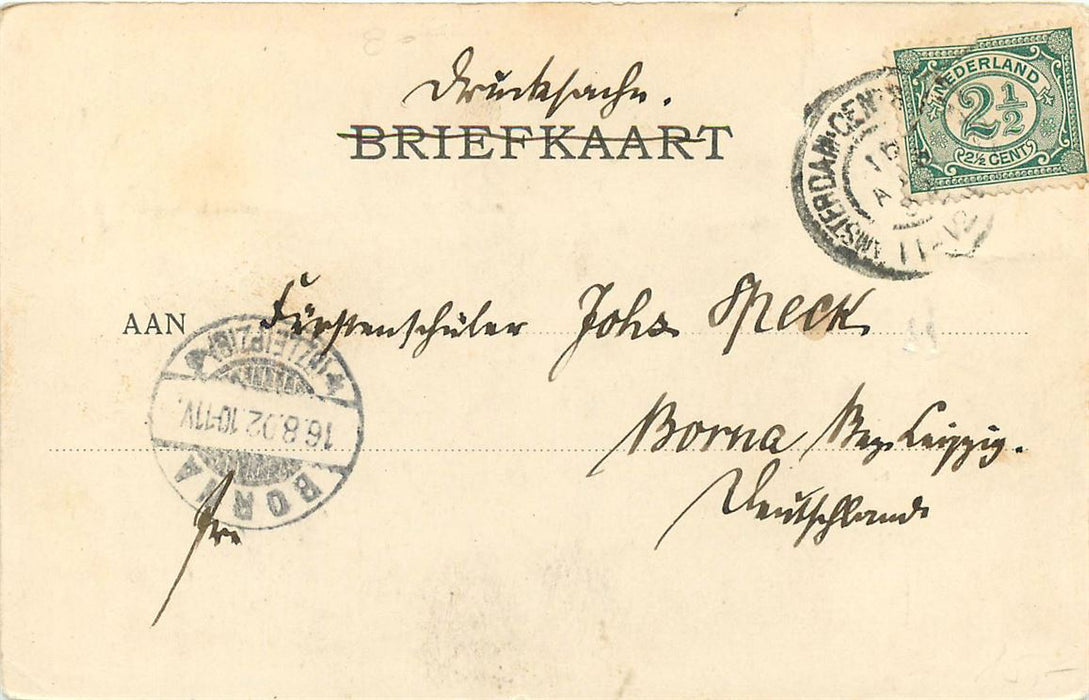 Drucksache.
BRIEFKAART
NEDERLAND
2½
2½ CENTS
AMSTERDAM-CEN
11-12
AAN Fürstenschüler Johs Speck
Borna Bez. Leipzig.
Deutschland
(BZ. LEIPZIG)
16.8.02.10-11V.
BORNA